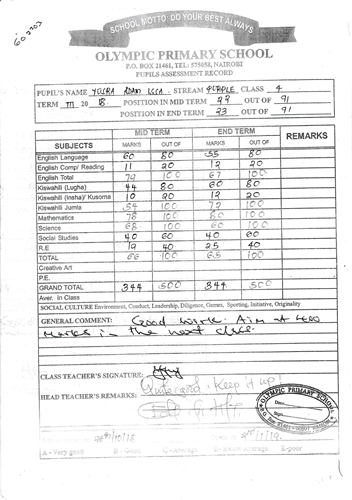 SCHOOL MOTTO: DO YOUR BEST ALWAYS
OLYMPIC PRIMARY SCHOOL
P.O. BOX 21461, TEL: 575058, NAIROBI
PUPILS ASSESSMENT RECORD
PUPIL'S NAME STREAM PURPLE CLASS 4
TERM III 20 POSITION IN MID TERM OUT OF 91
POSITION IN END TERM 23 OUT OF 91
MID TERM END TERM REMARKS
SUBJECTS MARKS OUT OF MARKS OUT OF
English Language 60 80 55 80
English Comp/ Reading 11 20 12 20
English Total 100 67 100
Kiswahili (Lugha) 44 80 60 80
Kiswahili (Insha)/ Kusoma 10 20 12 20
Kiswahili Jumla 54 100 72 100
Mathematics 78 100 80 100
Science 68 100 60 100
Social Studies 40 60 40 60
R.E 40 25 40
TOTAL 66 100 65 100
Creative Art
P.E.
GRAND TOTAL 344 500 344 500
Aver. in Class
SOCIAL CULTURE Environment, Conduct, Leadership, Diligence, Games, Sporting, Initiative, Originality
GENERAL COMMENT: Good work. Aim at
marks in the next class.
CLASS TEACHER'S SIGNATURE:
HEAD TEACHER'S REMARKS: Keep it up!
OLYMPIC PRIMARY SCHOOL
A - Very good B - Good C - Average E-poor